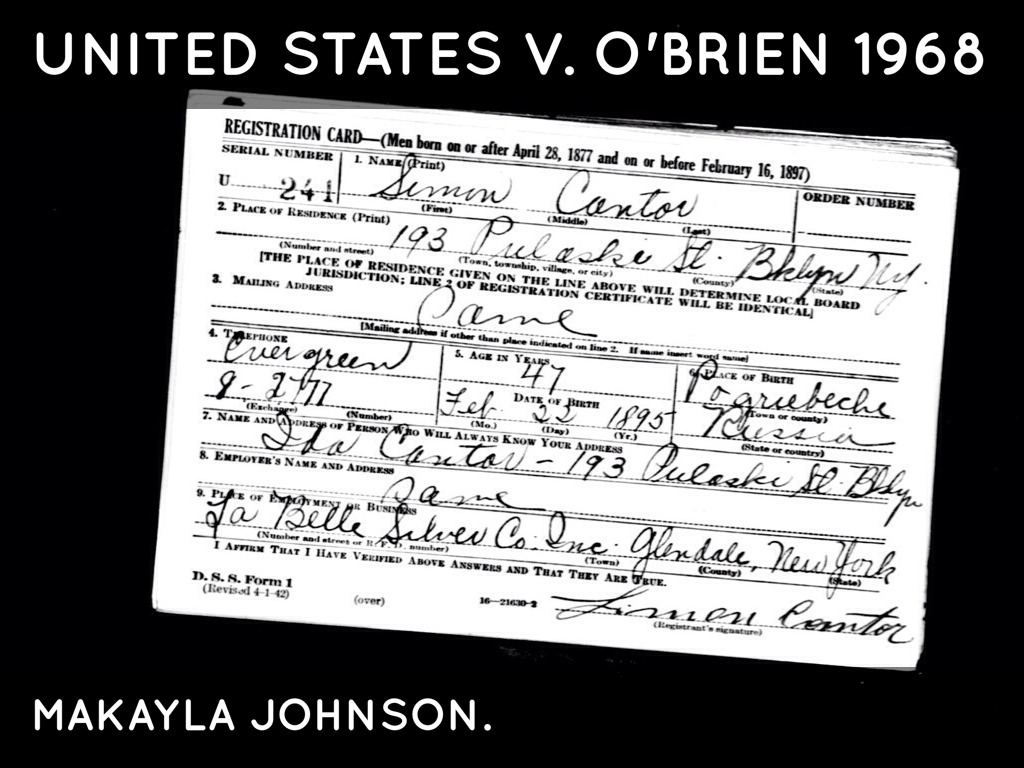 UNITED STATES V. O'BRIEN 1968
REGISTRATION CARD—(Men born on or after April 28, 1877 and on or before February 16, 1897)
SERIAL NUMBER 1. NAME (Print) ORDER NUMBER
U 241 Simon Cantor
(First) (Middle) (Last)
2. PLACE OF RESIDENCE (Print)
193 Pulaski St. Bklyn NY.
(Number and street) (Town, township, village, or city) (County) (State)
[THE PLACE OF RESIDENCE GIVEN ON THE LINE ABOVE WILL DETERMINE LOCAL BOARD
JURISDICTION; LINE 2 OF REGISTRATION CERTIFICATE WILL BE IDENTICAL]
3. MAILING ADDRESS
Same
[Mailing address if other than place indicated on line 2. If same insert word same]
4. TELEPHONE 5. AGE IN YEARS 6. PLACE OF BIRTH
Evergreen 47 Pogriebeche
DATE OF BIRTH (Town or county)
8-2777 Feb. 22 1895 Russia
(Exchange) (Number) (Mo.) (Day) (Yr.) (State or country)
7. NAME AND ADDRESS OF PERSON WHO WILL ALWAYS KNOW YOUR ADDRESS
Ida Cantor - 193 Pulaski St. Bklyn
8. EMPLOYER'S NAME AND ADDRESS
Same
9. PLACE OF EMPLOYMENT OR BUSINESS
La Belle Silver Co. Inc. Glendale, New York
(Number and street or R. F. D. number) (Town) (County) (State)
I AFFIRM THAT I HAVE VERIFIED ABOVE ANSWERS AND THAT THEY ARE TRUE.
D. S. S. Form 1
(Revised 4-1-42) (over) 16—21630-2 Simon Cantor
(Registrant's signature)
MAKAYLA JOHNSON.